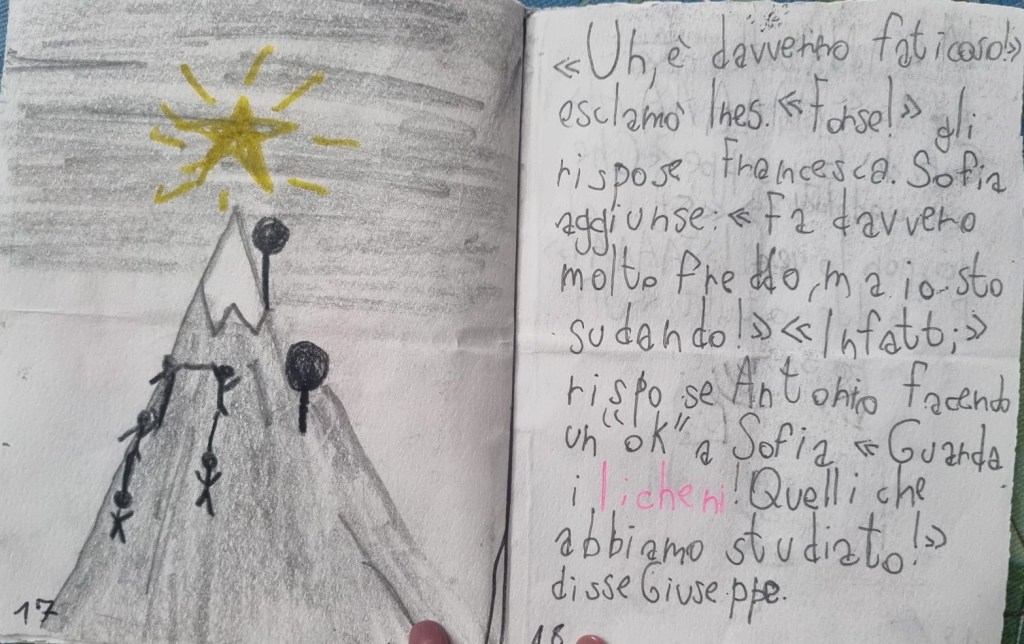 17
«Uh, è davvenno faticoso!»
esclamò Ines. «Forse!» gli
rispose Francesca. Sofia
aggiunse: «Fa davvero
molto freddo, ma io sto
sudando!» «Infatti»
rispose Antonio facendo
un "ok" a Sofia «Guarda
i licheni! Quelli che
abbiamo studiato!»
disse Giuseppe.
18